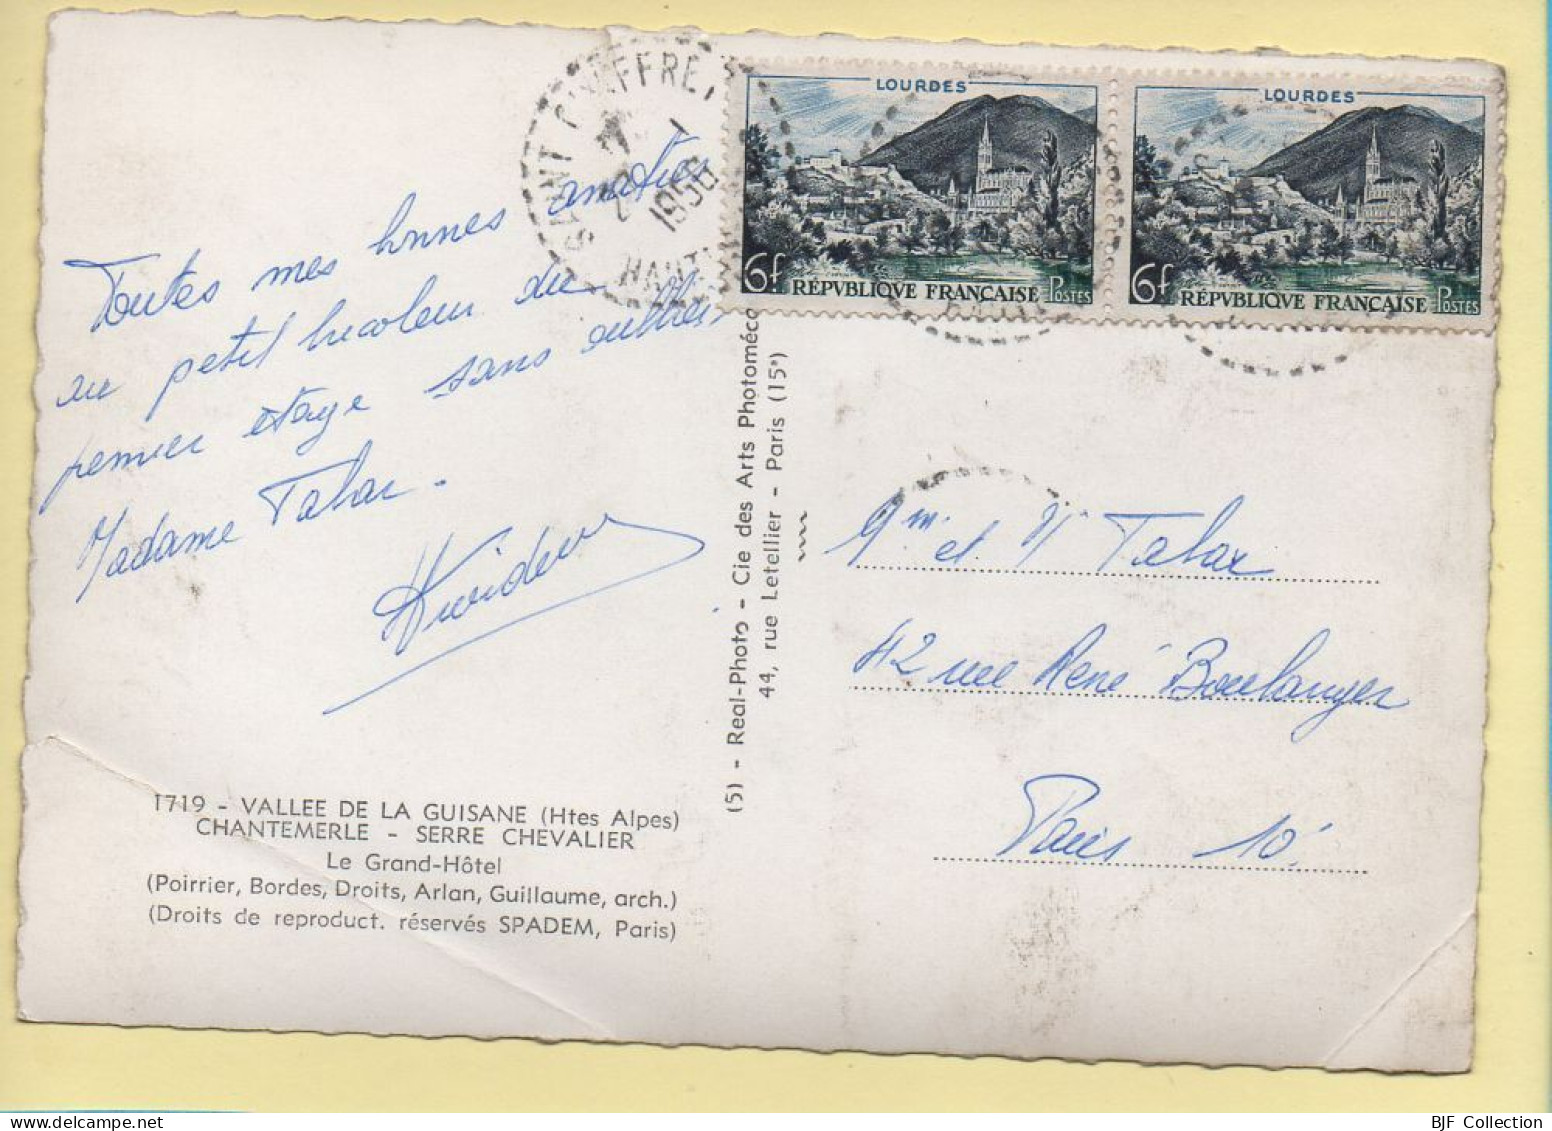 SAINT CHAFFREY
1956
HAUTES
LOURDES
6f RÉPVBLIQVE FRANÇAISE POSTES
LOURDES
6f RÉPVBLIQVE FRANÇAISE POSTES
Toutes mes bonnes amitiés
au petit tricoleur du
premier étage sans oublier
Madame Talar.
(5) - Real-Photo - Cie des Arts Photoméca
44, rue Letellier - Paris (15e)
et Talar
42 rue René Boulanger
Paris 10e
1719 - VALLEE DE LA GUISANE (Htes Alpes)
CHANTEMERLE - SERRE CHEVALIER
Le Grand-Hôtel
(Poirrier, Bordes, Droits, Arlan, Guillaume, arch.)
(Droits de reproduct. réservés SPADEM, Paris)
BJF Collection